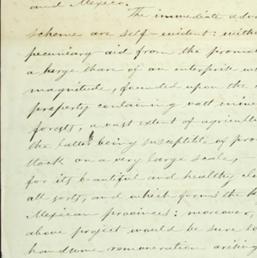 and Mexico.
The immediate adva
scheme are self-evident: witho
pecuniary aid from the promot
a large share of an enterprise wi
magnitude, founded upon the
property containing vast mine
forests, a vast extent of agricultu
the latter being susceptible of pro
stock on a very large scale,
for its beautiful and healthy cli
all sorts, and which forms the k
Mexican provinces: moreover,
above project would be sure to
handsome remuneration arising